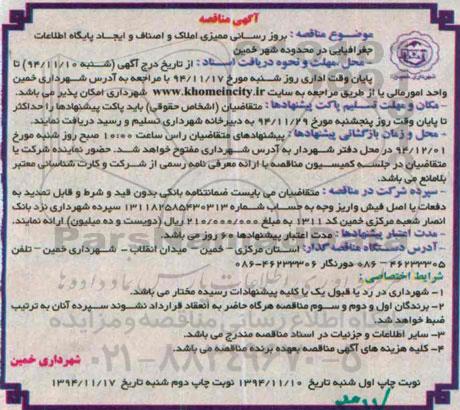 آگهی مناقصه
شهرداری خمین
موضوع مناقصه : بروز رسانی ممیزی املاک و اصناف و ایجاد پایگاه اطلاعات
جغرافیایی در محدوده شهر خمین
محل،مهلت و نحوه دریافت اسناد : از تاریخ درج آگهی (شنبه ۹۴/۱۱/۱۰) تا
پایان وقت اداری روز شنبه مورخ ۹۴/۱۱/۱۷ با مراجعه به آدرس شهرداری خمین
واحد امورمالی یا از طریق مراجعه به سایت www.khomeincity.ir شهرداری امکان پذیر می باشد.
- مکان و مهلت تسلیم پاکت پیشنهادها : متقاضیان (اشخاص حقوقی) باید پاکت پیشنهادها را حداکثر
تا پایان وقت روز پنجشنبه مورخ ۹۴/۱۱/۲۹ به دبیرخانه شهرداری تسلیم و رسید دریافت نمایند.
- محل و زمان بازگشائی پیشنهادها : پیشنهادهای متقاضیان راس ساعت ۱۰:۰۰ صبح روز شنبه مورخ
۹۴/۱۲/۰۱ در محل دفتر شهردار به آدرس شهرداری مفتوح خواهد شد. حضور نماینده شرکت یا
متقاضیان در جلسه کمیسیون مناقصه با ارائه معرفی نامه رسمی از شرکت و کارت شناسائی معتبر
بلامانع می باشد.
- سپرده شرکت در مناقصه : متقاضیان می بایست ضمانتنامه بانکی بدون قید و شرط و قابل تمدید به
دفعات یا اصل فیش واریز وجه به حساب شماره ۱۳۱۱۸۲۵۸۵۴۳۰۳۱۳ سپرده شهرداری نزد بانک
انصار شعبه مرکزی خمین کد ۱۳۱۱ به مبلغ ۲۱۰/۰۰۰/۰۰۰ ریال (دویست و ده میلیون) ارائه نمایند.
- مدت اعتبار پیشنهادها : مدت اعتبار پیشنهادها ۶۰ روز می باشد.
- آدرس دستگاه مناقصه گذار: استان مرکزی - خمین - میدان انقلاب - شهرداری خمین - تلفن
۴۶۲۳۳۳۰۵ - ۰۸۶ دورنگار ۴۶۲۳۳۳۰۶-۰۸۶
شرایط اختصاصی :
۱- شهرداری در رد یا قبول یک یا کلیه پیشنهادات رسیده مختار می باشد.
۲- برندگان اول و دوم و سوم مناقصه هرگاه حاضر به انعقاد قرارداد نشوند سپرده آنان به ترتیب
ضبط خواهد شد.
۳- سایر اطلاعات و جزئیات در اسناد مناقصه مندرج می باشد.
۴- کلیه هزینه های آگهی مناقصه بعهده برنده مناقصه می باشد.
شهرداری خمین
نوبت چاپ اول شنبه تاریخ ۱۳۹۴/۱۱/۱۰ نوبت چاپ دوم شنبه تاریخ ۱۳۹۴/۱۱/۱۷
۰۲۱-۸۸۳۴۹۶۷۰-۵